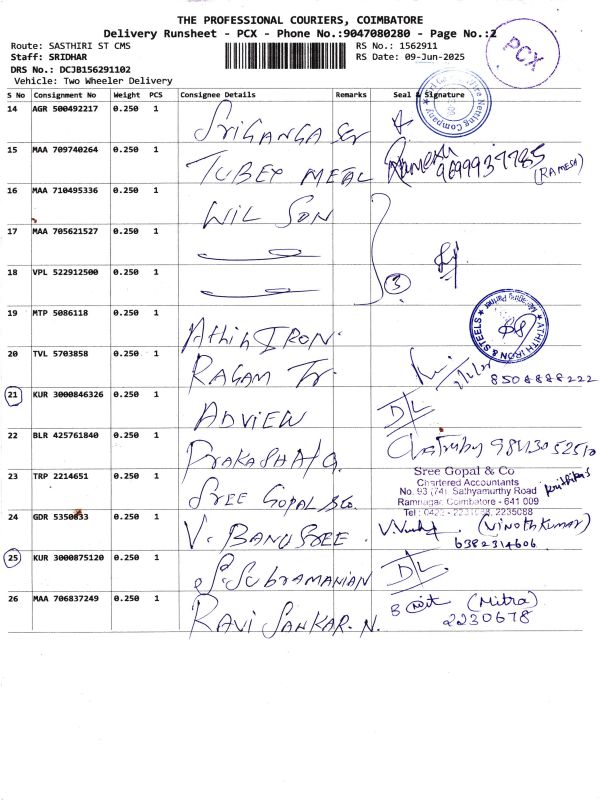 THE PROFESSIONAL COURIERS, COIMBATORE
Delivery Runsheet - PCX - Phone No.:9047080280 - Page No.:2
PCX
Route: SASTHIRI ST CMS
RS No.: 1562911
Staff: SRIDHAR
RS Date: 09-Jun-2025
DRS No.: DCJB156291102
Vehicle: Two Wheeler Delivery
S No Consignment No Weight PCS Consignee Details Remarks Seal & Signature
14 AGR 500492217 0.250 1 SRIGANGA Ser
Netting Company
15 MAA 709740264 0.250 1 TUBEX METAL Ramesh 9699937785 (RAMESH)
16 MAA 710495336 0.250 1 WILSON
17 MAA 705621527 0.250 1
18 VPL 522912500 0.250 1 3
19 MTP 5086118 0.250 1 Athith IRON.
ATHITH IRON & STEELS
Managing Partner
20 TVL 5703858 0.250 1 RAGAM Tr. 8508888222
21 KUR 3000846326 0.250 1 ADVIEW D/L
22 BLR 425761840 0.250 1 PRAKASH
23 TRP 2214651 0.250 1 SREE GOPAL & Co.
Sree Gopal & Co
Chartered Accountants
No. 93 (74), Sathyamurthy Road
Ramnagar, Coimbatore - 641 009
Tel : 0422 - 2231088, 2235088
24 GDR 5350833 0.250 1 V. BANUSREE. (Vinothkumar)
6382314606
25 KUR 3000875120 0.250 1 P. Subramanian D/L
26 MAA 706837249 0.250 1 RAVI SANKAR. N. (Mitra)
2230678